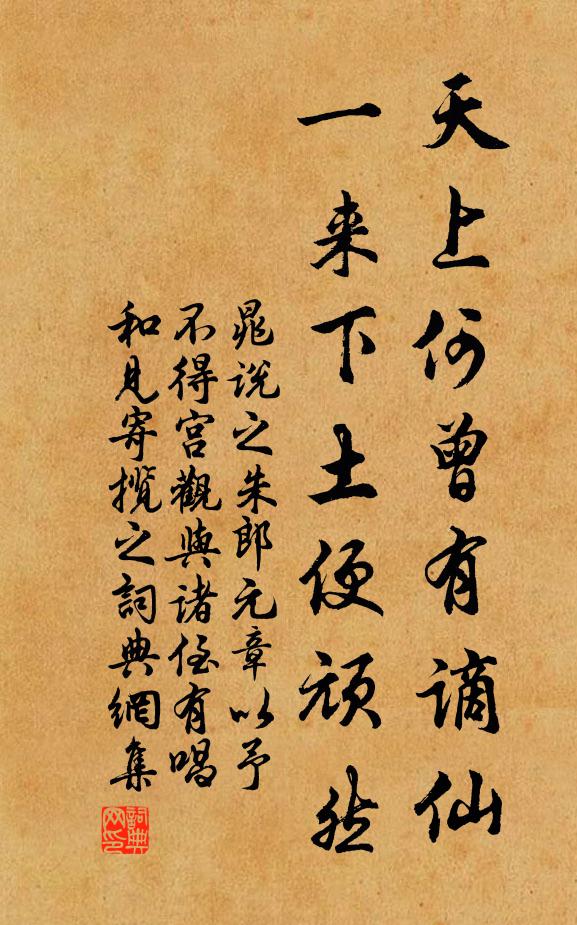 天上何曾有谪仙
一来下土便顽然
晁说之朱郎元章以予
不得宫觀與诸侄有唱
和見寄揽之詞典網集
詞典网印